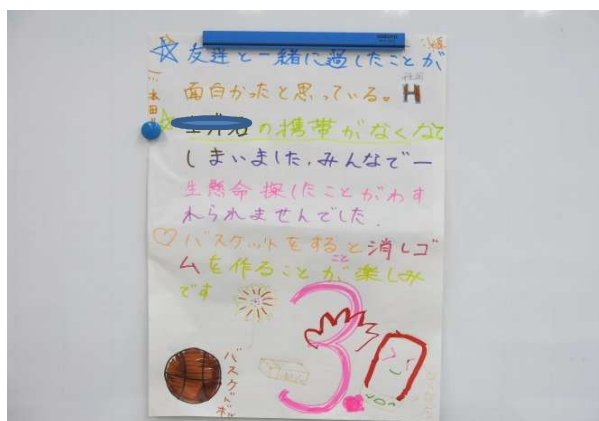 ☆友達と一緒に過したことが
面白かったと思っている。
H
の携帯がなくなて
しまいました.みんなで一
生懸命探したことがわす
れられませんでした.
♡バスケットをすると消しゴ
ムを作ることが楽しみ
こと
です
3
バスケット